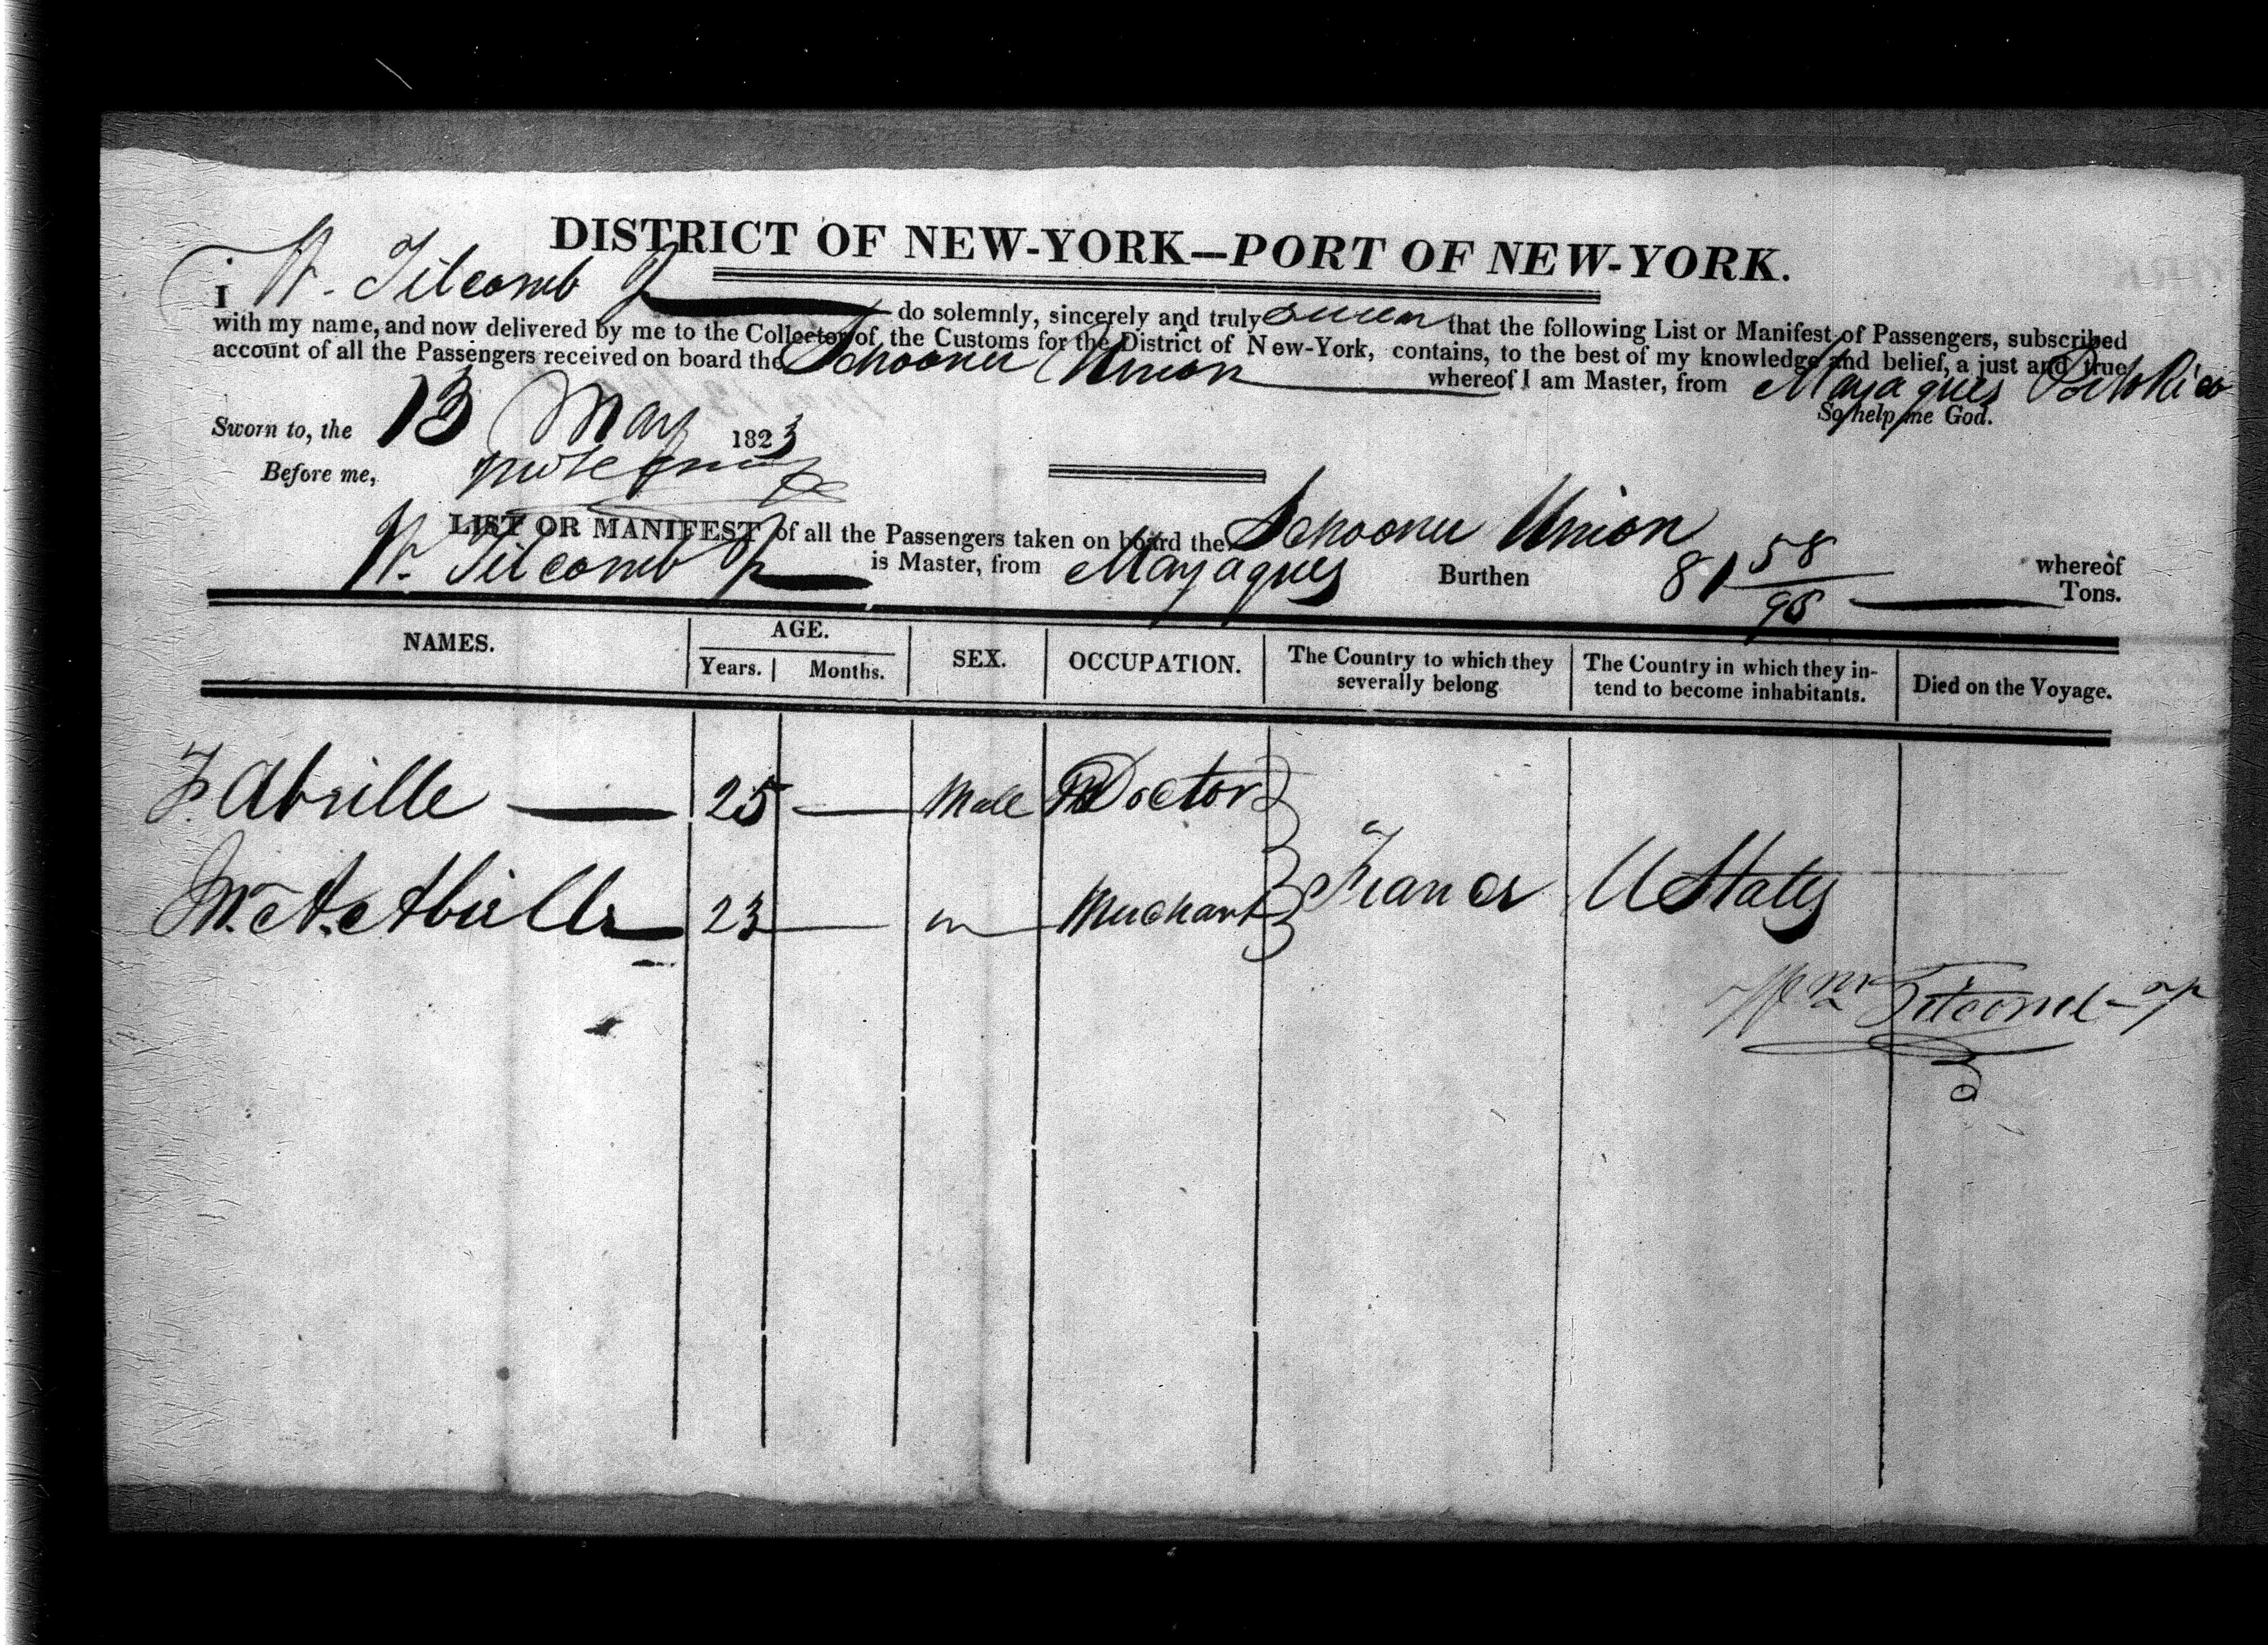 DISTRICT OF NEW-YORK—PORT OF NEW-YORK.
I W. Titcomb Jr do solemnly, sincerely and truly swear that the following List or Manifest of Passengers, subscribed
with my name, and now delivered by me to the Collector of the Customs for the District of New-York, contains, to the best of my knowledge and belief, a just and true
account of all the Passengers received on board the Schooner Union whereof I am Master, from Mayagues Porto Rico
So help me God.
Sworn to, the 13 May 1823
Before me,
LIST OR MANIFEST of all the Passengers taken on board the Schooner Union whereof
W. Titcomb Jr is Master, from Mayagues Burthen 81 58/95 Tons.
NAMES. AGE. SEX. OCCUPATION. The Country to which they severally belong The Country in which they intend to become inhabitants. Died on the Voyage.
Years. Months.
F. Abrille 25 Male Doctor
M. A. Abrille 23 Merchant France U States
Wm Titcomb Jr